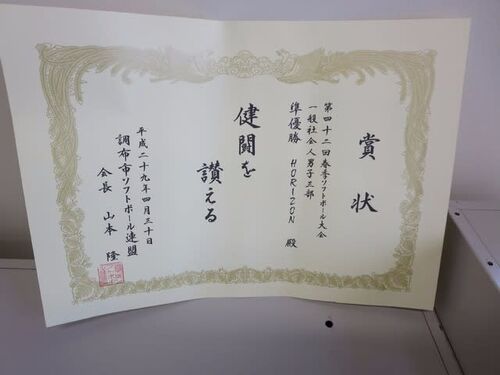 賞状
第四十二回春季ソフトボール大会
一般社会人男子三部
準優勝 HORIZON 殿
健闘を
讃える
平成二十九年四月三十日
調布市ソフトボール連盟
会長 山本 隆